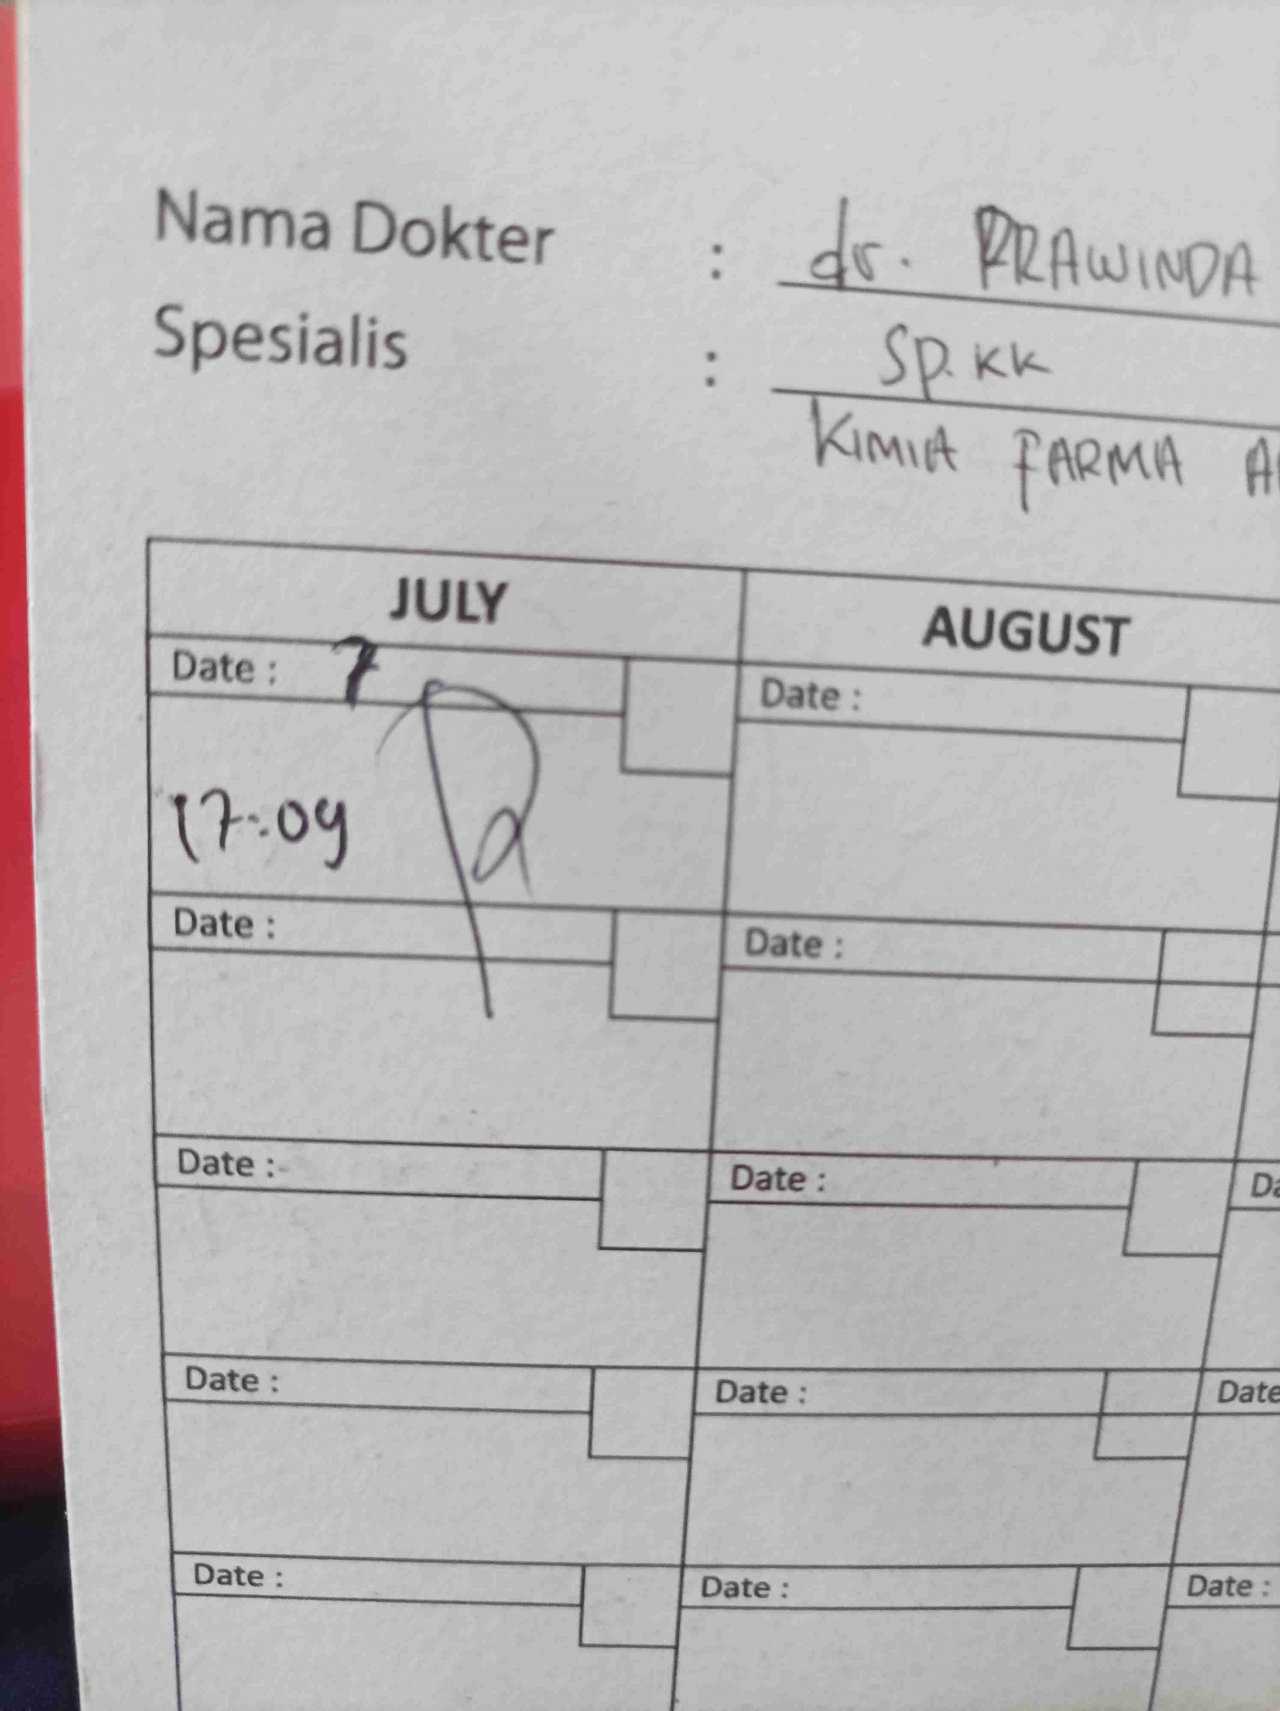 Nama Dokter : dr. PRAWINDA
Spesialis : Sp. KK
KIMIA FARMA
JULY AUGUST
Date : 7 Date :
17:09
Date : Date :
Date : Date :
Date : Date : Date
Date : Date : Date :